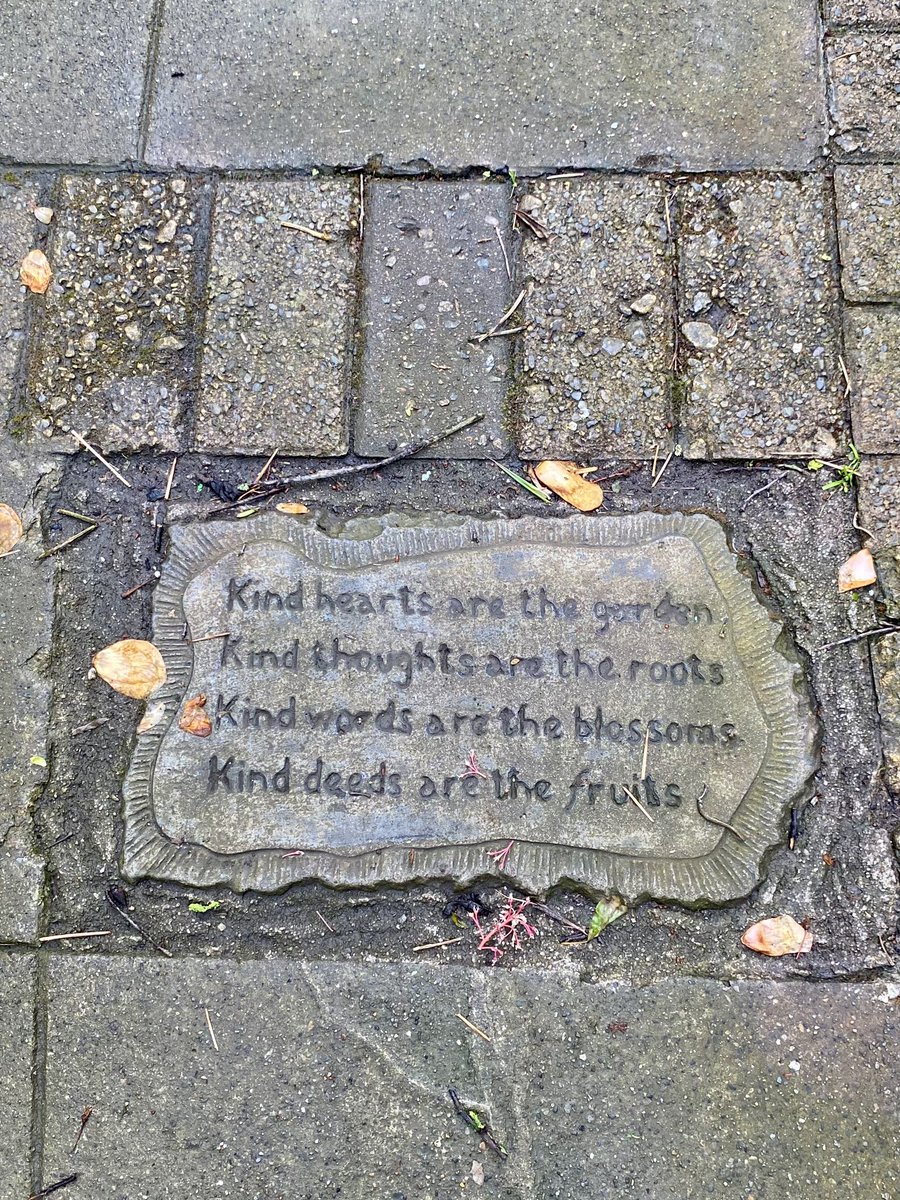 Kind hearts are the garden,
Kind thoughts are the roots
Kind words are the blossoms
Kind deeds are the fruits